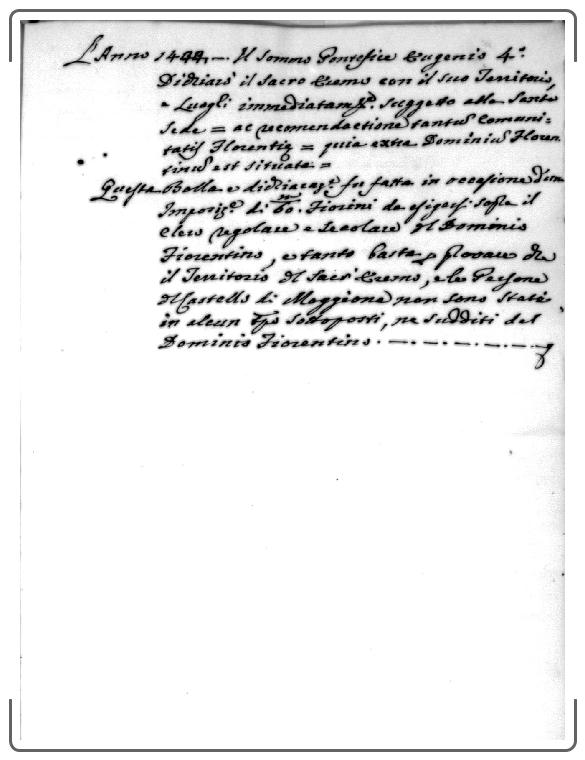 L'Anno 1444. — Il Sommo Pontefice Eugenio 4.º
Dichiarò il Sacro Eremo con il suo Territorio,
e Luoghi immediatam.te suggetto alla Santa
Sede = ac recomendactione tantus Comuni-
tatis Florentie = quia extra Dominiũ Floren
tinũ est situata =
Questa Bolla e dichiaraz.e fu fatta in occasione d'una
Imposiz.e di Fiorini da esigersi sopra il
Clero regolare e Secolare del Dominio
Fiorentino, e tanto basta p provare che
il Territorio del Sacro Eremo, e le Persone
del Castello di Moggiona non sono stati
in alcun tpo sottoposti, ne sudditi del
Dominio Fiorentino. — . — . — . —